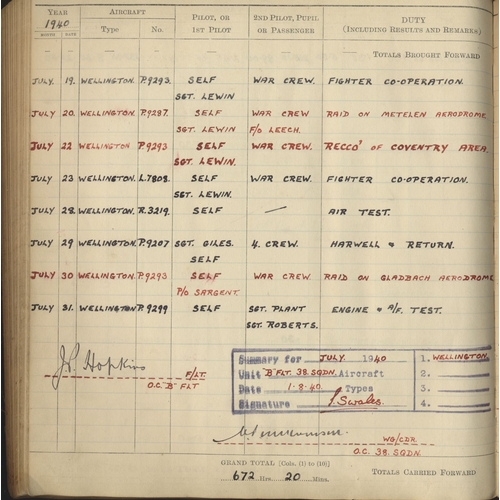 YEAR AIRCRAFT PILOT, OR 2ND PILOT, PUPIL DUTY
1940 1ST PILOT OR PASSENGER (INCLUDING RESULTS AND REMARKS)
MONTH DATE Type No.
— — — — — — TOTALS BROUGHT FORWARD
JULY. 19. WELLINGTON. P.9293. SELF WAR CREW. FIGHTER CO-OPERATION.
SGT. LEWIN
JULY 20. WELLINGTON. P.9287. SELF WAR CREW RAID ON METELEN AERODROME.
SGT. LEWIN F/O LEECH.
JULY 22 WELLINGTON P.9293 SELF WAR CREW. RECCO' OF COVENTRY AREA.
SGT. LEWIN.
JULY 23 WELLINGTON. L.7808. SELF WAR CREW. FIGHTER CO-OPERATION.
SGT. LEWIN.
JULY 28. WELLINGTON. R.3219. SELF — AIR TEST.
JULY 29 WELLINGTON. P.9207 SGT. GILES. 4. CREW. HARWELL & RETURN.
SELF
JULY 30 WELLINGTON. P.9293 SELF WAR CREW. RAID ON GLADBACH AERODROME
P/O SARGENT.
JULY 31. WELLINGTON P.9299 SELF SGT. PLANT ENGINE & A/F. TEST.
SGT. ROBERTS.
Summary for JULY. 1940 1. WELLINGTON.
J. Hopkins F/LT. Unit "B" FLT. 38. SQDN. Aircraft 2.
O.C. "B" FLT Date 1.8.40. Types 3.
Signature J. Swales. 4.
WG/CDR.
O.C. 38. SQDN.
GRAND TOTAL [Cols. (1) to (10)] TOTALS CARRIED FORWARD
672 Hrs. 20 Mins.